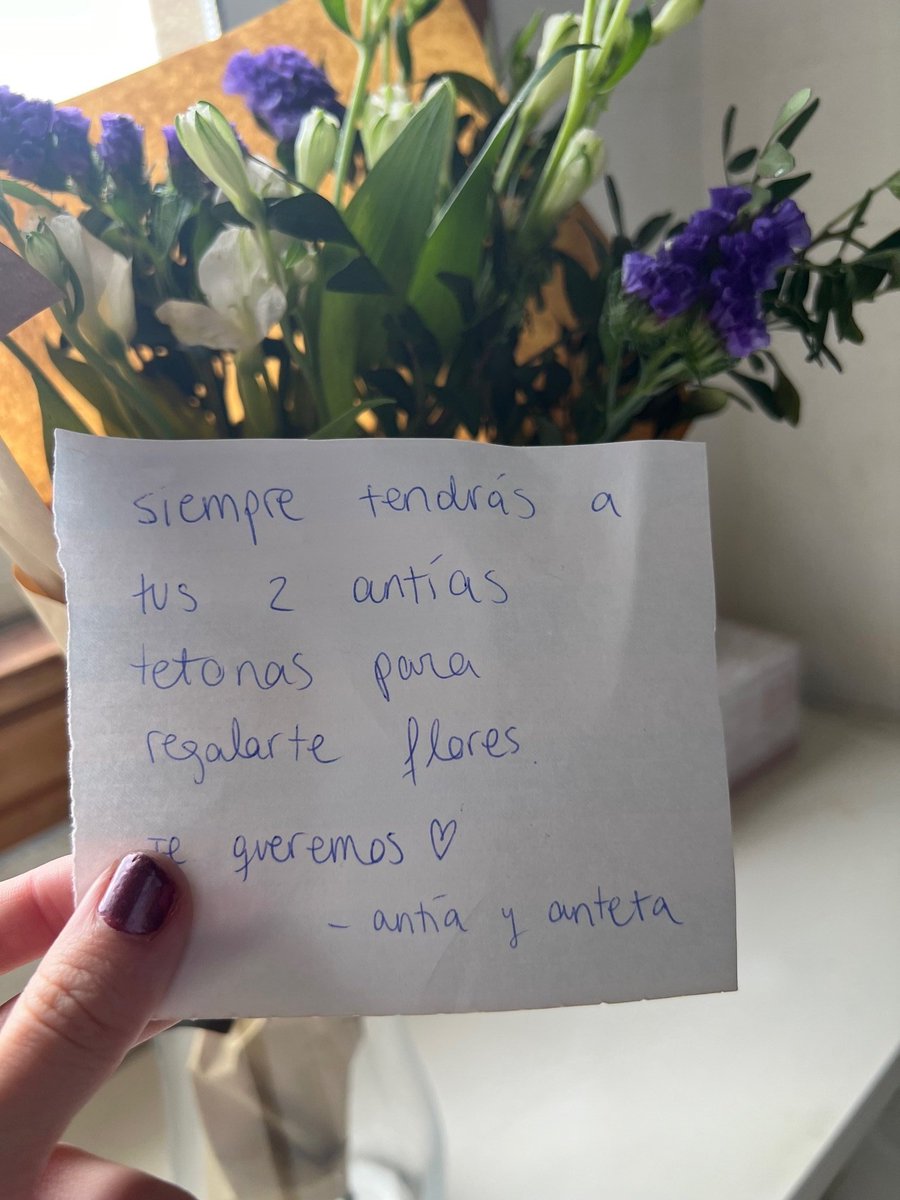 siempre tendrás a
tus 2 antías
tetonas para
regalarte flores.
te queremos ♡
– antía y anteta